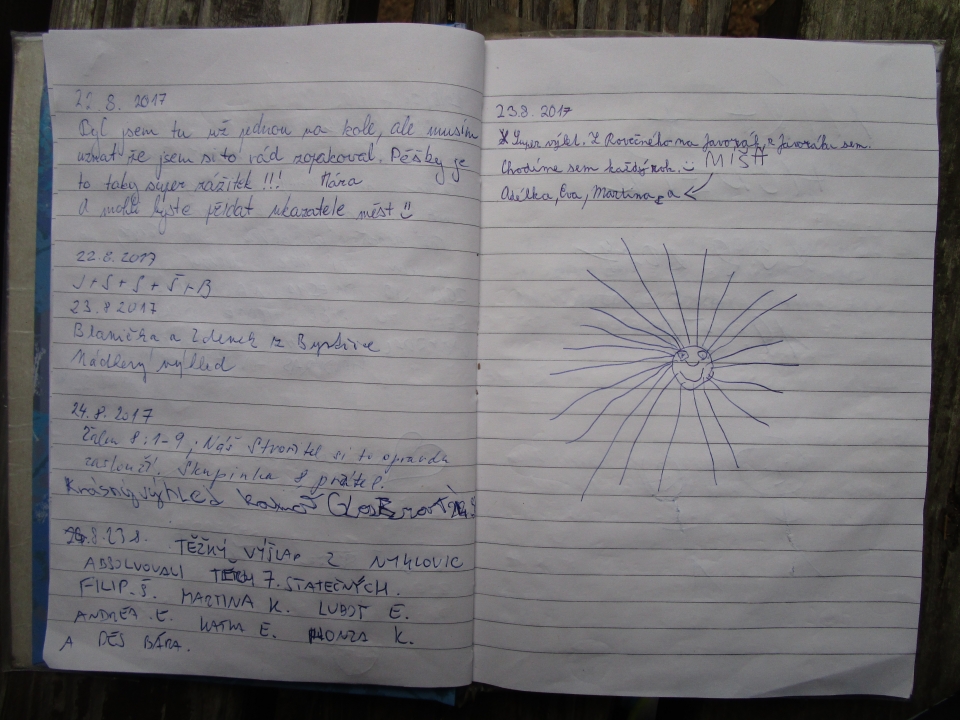 22. 8. 2017
Byl jsem tu už jednou na kole, ale musím
uznat že jsem si to rád zopakoval. Pěšky je
to taky super zážitek !!! Mára
A mohli byste přidat ukazatele měst
22.8. 2017
J+S+S+Š+B
23.8 2017
Blanička a Zdenek z Bystřice
Nádherný výhled
24.8. 2017
Žalm 8:1-9, Náš Stvořitel si to opravdu
zaslouží. Skupinka 8 přátel.
Krásný výhled
8.23 8. TĚŽKÝ VÝŠLAP Z
ABSOLVOVALI TĚCH 7. STATEČNÝCH.
FILIP.Š. MARTINA K. LUBOŠ E.
ANDREA .E. KATKA E. HONZA K.
A PES BÁRA.
23.8. 2017
Super výhl. Z Rovečného na Javorák z Javoráku sem.
Chodíme sem každý rok. MÍŠA
Adélka, Eva, Martina, a